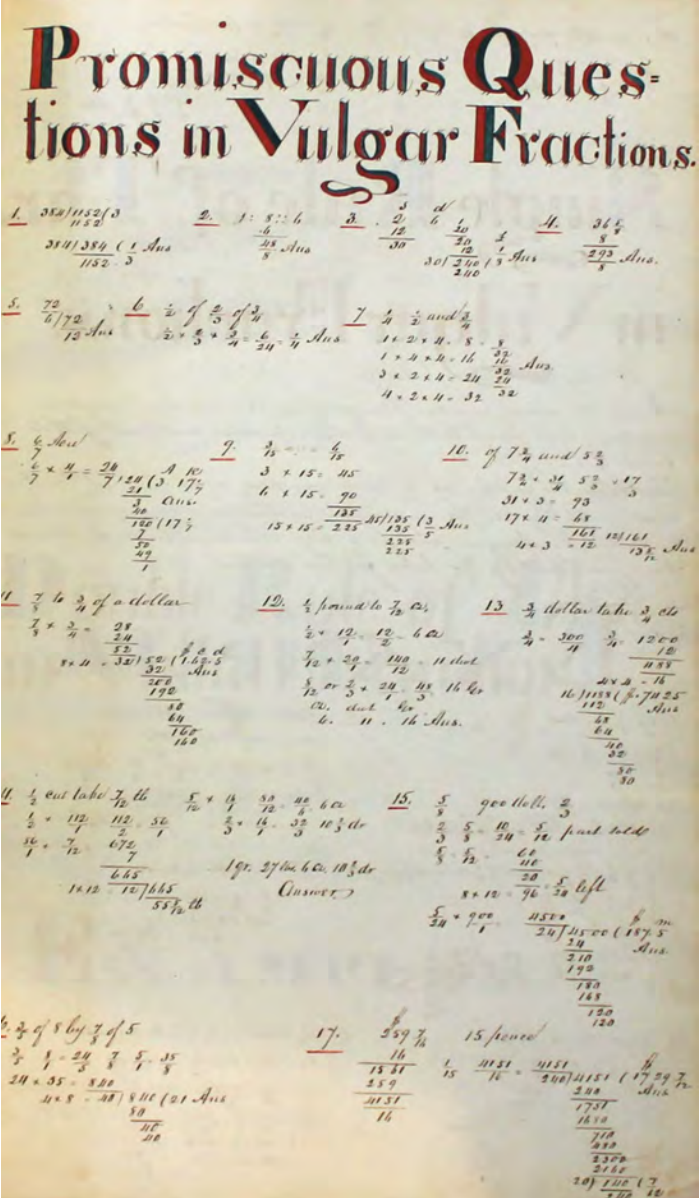 Promiscuous Ques=
tions in Vulgar Fractions.
1. 384)1152(3
1152
384)384(1/3 Ans
1152
2. 1:8::6
6
48/8 Ans
3. s d
2 6
12
30
1/20
20
12
30)240(1/3 Ans
240
4. 36 5/8
8
293/8 Ans.
5. 72
6/72
12 Ans
6 1/2 of 2/3 of 3/4
1/2 × 2/3 × 3/4 = 6/24 = 1/4 Ans
7 1/4 1/2 and 3/4
1 × 2 × 4 = 8 = 8/32
1 × 4 × 4 = 16 16/32 Ans.
3 × 2 × 4 = 24 24/32
4 × 2 × 4 = 32
8. 6/7
6/7 × 4/1 = 24/7
7)24(3
21
3 Ans.
40
120(17
7
50
49
1
9. 3/15 6/15
3 × 15 = 45
6 × 15 = 90
135
15 × 15 = 225 45)135(3/5 Ans
135
225
225
10. of 7 3/4 and 5 2/3
7 3/4 = 31/4 5 2/3 = 17/3
31 × 3 = 93
17 × 4 = 68
161 12)161
4 × 3 = 12 13 5/12 Ans
7/8 to 3/4 of a dollar
7/8 × 3/4 = 28
24
52 $ c d
8 × 4 = 32)52(1.62.5
32 Ans
200
192
80
64
160
160
12. 1/2 pound to 7/12 oz.
1/2 × 12/1 = 12/2 = 6 oz
7/12 × 20/1 = 140/12 = 11 dwt
8/12 or 2/3 × 24/1 = 48/3 16 gr
oz. dwt gr
6. 11. 16 Ans.
13 3/4 dollar take 3/4 cts
3/4 = 300/4 3/4 = 1200
12
1188
4 × 4 = 16
16)1188($.7425
112 Ans
68
64
40
32
80
80
1/2 cwt take 7/12 lb
1/2 × 112/1 112/2 = 56/1
56/1 × 7/12 = 672
7
665
1 × 12 = 12)665
55 5/12 lb
5/12 × 16/1 80/12 = 40/6 6 oz
2/3 × 16/1 = 32/3 10 2/3 dr
1 qr. 27 lbs 6 oz. 10 2/3 dr
Answer
15. 5/8 900 doll. 2/3
2/3 5/8 = 10/24 = 5/12 part sold
5/8 5/12 = 60
40
20
8 × 12 = 96 = 5/24 left
5/24 × 900/1 = 4500 $ m
24)4500(187.5
24 Ans
210
192
180
168
120
120
3/5 of 8 by 7/8 of 5
3/5 8/1 = 24/5 7/8 5/1 = 35/8
24 × 35 = 840
4 × 8 = 40)840(21 Ans
80
40
40
17. $ 259 7/16 15 pence
16
1561
259
4151
16
1/15 4151/16 = 4151 $
240)4151(17 29 7/12
240 Ans
1751
1680
710
480
2300
2160
20)140(7
240 12